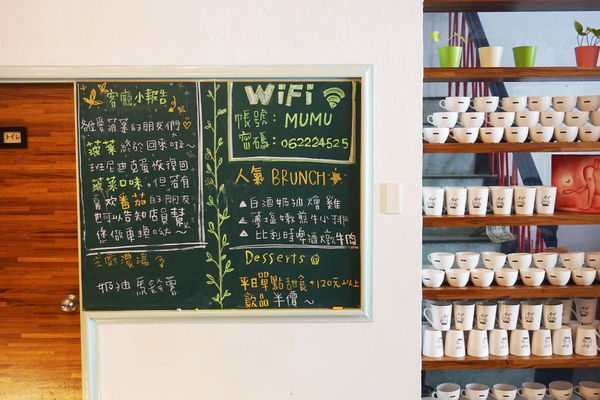 トイレ
客廳小報告
各位愛菠菜的朋友們♡
菠菜終於回來啦~
班尼迪克蛋恢復回
菠菜口味,但若有
喜歡番茄的朋友
也可以告知店員幫
您做更換呦~
主廚濃湯
奶油馬鈴薯
WiFi
帳號: MUMU
密碼: 062224525
人氣 BRUNCH
▲白酒奶油燴雞
▲薄鹽嫩煎牛小排
▲比利時啤酒燉牛肉
Desserts
平日單點甜食・120元以上
飲品半價~